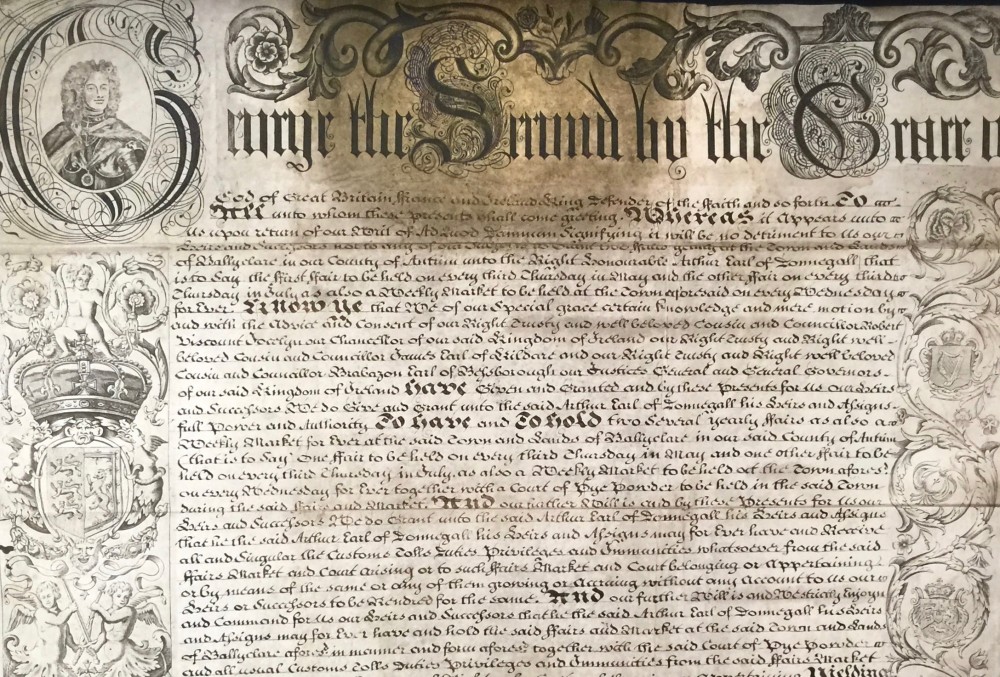 George the Second by the Grace o
God of Great Britain ffrance and Ireland King Defender of the ffaith and so forth To
All unto whom these presents shall come greeting. Whereas it Appears unto
us upon return of our Writ of Ad Quod Damnum Signifying it will be no detriment to us our
Heirs and Successors nor to any of our to Grant two ffairs at the Town and Lands
of Ballyclare in our County of Antrim unto the Right Honourable Arthur Earl of Donnegall that
is to Say the ffirst ffair to be held on every third Thursday in May and the other ffair on every third
Thursday in July as also a Weekly Market to be held at the Town aforesaid on every Wednesday
for Ever Know Ye that We of our Special grace certain knowledge and mere motion by
and with the Advice and Consent of our Right Trusty and well beloved Cousin and Councillor Robert
Viscount Jocelyn our Chancellor of our said Kingdom of Ireland our Right Trusty and Right well
beloved Cousin and Councillor James Earl of Kildare and our Right Trusty and Right well beloved
Cousin and Councillor Brabazon Earl of Bessborough our Justices General and General Governors
of our said Kingdom of Ireland Have Given and Granted and by these Presents for us our Heirs
and Successors We do Give and Grant unto the said Arthur Earl of Donnegall his Heirs and Assigns
full Power and Authority To have and To hold two Several yearly ffairs as also a
Weekly Market for Ever at the said Town and Lands of Ballyclare in our said County of Antrim
(that is to Say) One ffair to be held on every third Thursday in May and one other ffair to be
held on every third Thursday in July as also a Weekly Market to be held att the Town afores.d
on every Wednesday for Ever together with a Court of Pye Powder to be held in the said Town
during the said ffairs and Market. And our further Will is and by these Presents for us our
Heirs and Successors We do Grant unto the said Arthur Earl of Donnegall his Heirs and Assigns
that he the said Arthur Earl of Donnegall his Heirs and Assigns may for Ever have and Receive
all and Singular the Customs Tolls Duties Privileges and Immunities whatsoever from the said
ffairs Market and Court arising or to such ffairs Market and Court belonging or Appertaining
or by means of the same or any of them growing or Accruing without any Account to us our
Heirs or Successors to be Rendred for the same. And our further Will is and We strictly Enjoyn
and Command for us our Heirs and Successors that he the said Arthur Earl of Donnegall his Heirs
and Assigns may for Ever have and hold the said ffairs and Market at the said Town and Lands
of Ballyclare afores.d in manner and form afores.d together with the said Court of Pye Powder
and all usual Customs Tolls Duties Privileges and Immunities from the said ffairs Market
Appertaining Yielding